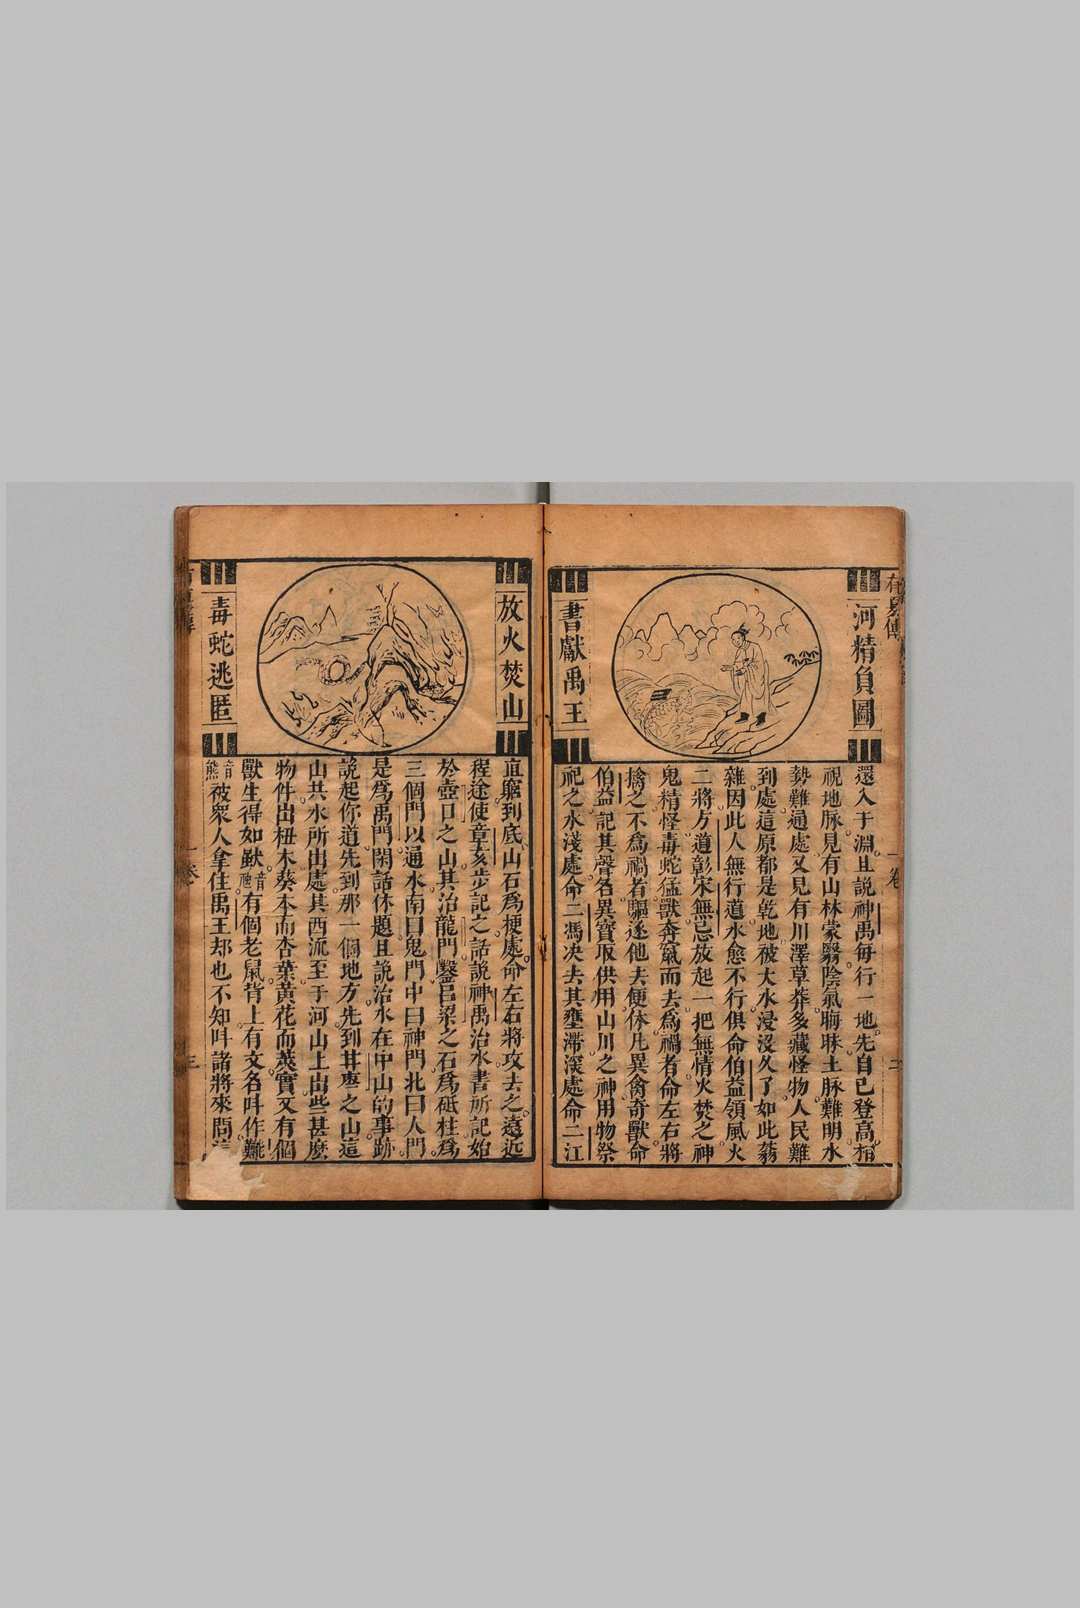 有夏傳
河精負圖
書獻禹王
還入于淵且說神禹每行一地先自己登高相
視地脉見有山林蒙翳陰氣晦昧土脉難明水
勢難通處又見有川澤草莽多藏怪物人民難
到處這原都是乾地被大水浸沒久了如此蓊
雜因此人無行道水愈不行俱命伯益領風火
二將方道彰宋無忌放起一把無情火焚之神
鬼精怪毒蛇猛獸奔竄而去為禍者命左右將
擒之不為禍者驅逐他去便休凡異禽奇獸命
伯益記其聲名異寶取供用山川之神用物祭
祀之水淺處命二馮决去其壅滯深處命二江
放火焚山
毒蛇逃匿
直窮到底山石為梗處命左右將攻去之遠近
程途使章亥步記之話說神禹治水書所記始
於壺口之山其治龍門鑿呂梁之石為砥柱為
三個門以通水南曰鬼門中曰神門北曰人門
是為禹門閑話休題且說治水在中山的事跡
說起你道先到那一個地方先到甘棗之山這
山共水所出處其西流至于河山上出些甚麼
物件出杻木葵本而杏葉黃花而莢實又有個
獸生得如䶂音 有個老鼠背上有文名叫作難
音熊 被眾人拿住禹王却也不知叫諸將來問